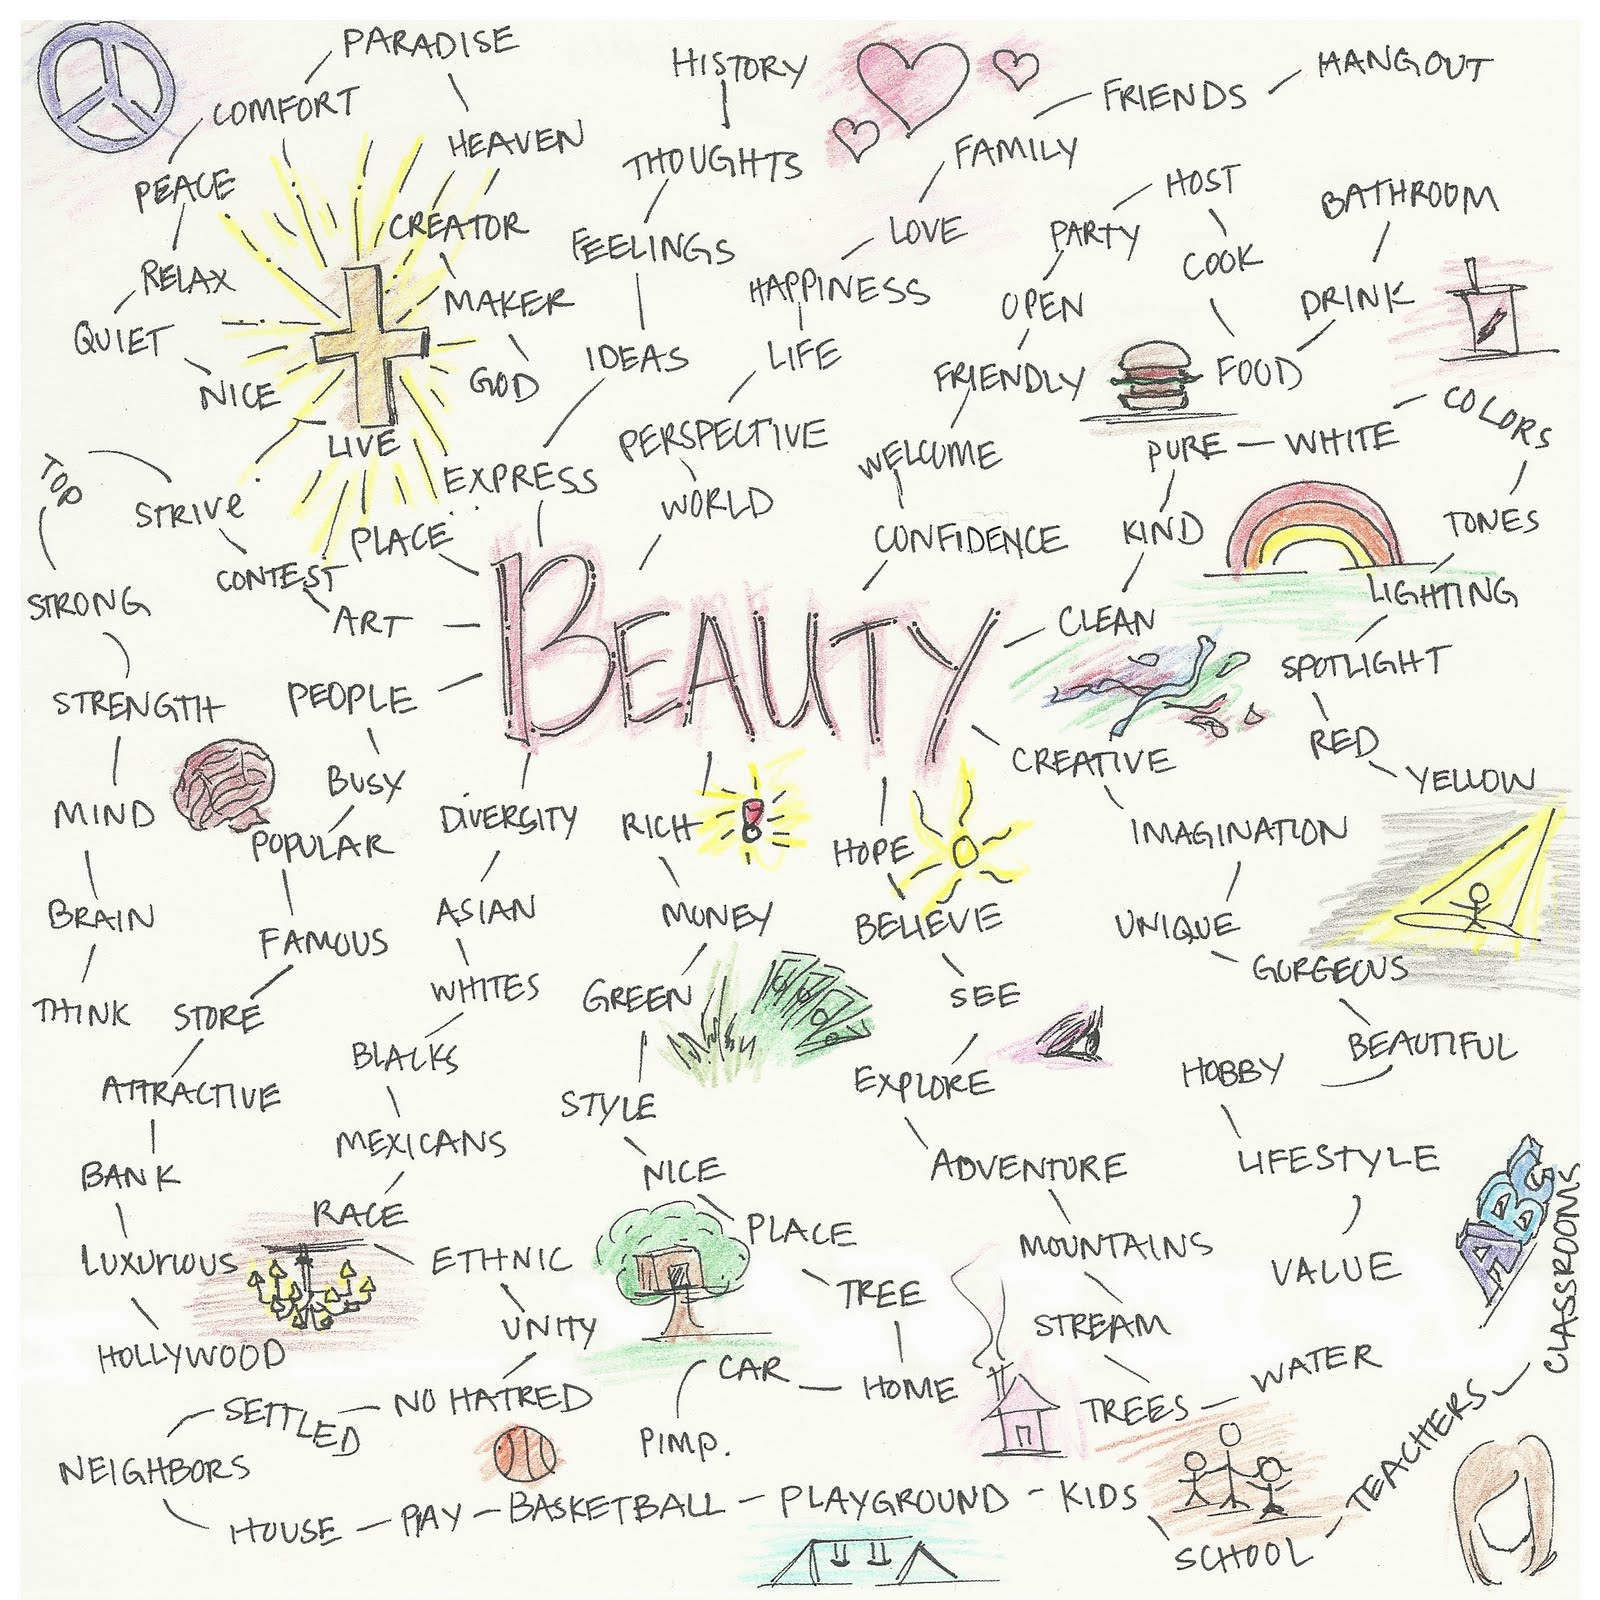 PARADISE
COMFORT
HEAVEN
PEACE
CREATOR
RELAX
MAKER
QUIET
NICE
GOD
LIVE
STRIVE
TOP
CONTEST
STRONG
STRENGTH
MIND
BRAIN
THINK
HISTORY
THOUGHTS
FEELINGS
IDEAS
EXPRESS
PLACE
ART
FAMILY
FRIENDS
HANGOUT
LOVE
HAPPINESS
LIFE
PERSPECTIVE
WORLD
HOST
PARTY
COOK
OPEN
FRIENDLY
WELCOME
CONFIDENCE
BATHROOM
DRINK
FOOD
COLORS
PURE
WHITE
KIND
TONES
LIGHTING
CLEAN
SPOTLIGHT
RED
YELLOW
BEAUTY
PEOPLE
BUSY
POPULAR
FAMOUS
STORE
ATTRACTIVE
BANK
LUXURIOUS
HOLLYWOOD
DIVERSITY
ASIAN
WHITES
BLACKS
MEXICANS
RACE
ETHNIC
UNITY
NO HATRED
SETTLED
NEIGHBORS
HOUSE
PLAY
BASKETBALL
PLAYGROUND
KIDS
SCHOOL
TEACHERS
CLASSROOMS
ABCS
RICH
MONEY
GREEN
STYLE
NICE
PLACE
TREE
HOME
CAR
PIMP.
HOPE
BELIEVE
SEE
EXPLORE
ADVENTURE
MOUNTAINS
STREAM
TREES
WATER
CREATIVE
IMAGINATION
UNIQUE
GORGEOUS
BEAUTIFUL
HOBBY
LIFESTYLE
VALUE